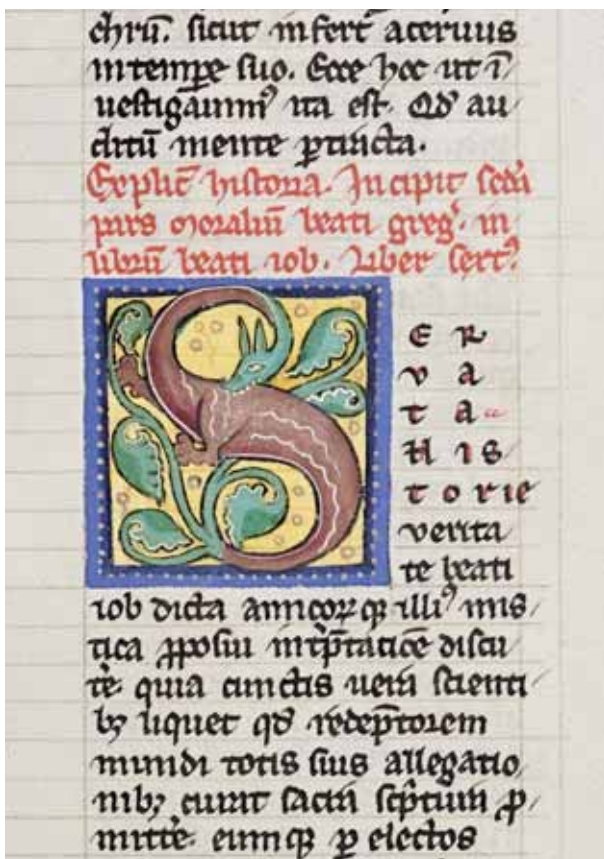 chrū. sicut infert᷑ aceruus
in tempe suo. Ecce hoc ut ī
uestigauimꝰ ita est. Qđ au
ditū mente ꝑtracta.
Explic̄ historia. Incipit scđa
pars moraliū beati greg. in
librū beati iob. Liber sextꝰ
S E R
V A
T A
H I S
T O R I E
verita
te beati
iob dicta amicorꝝ qꝫ illiꝰ mis
tica ꝓposui int̄p̄tatiōe discu
te. quia cunctis uera scienti
bꝫ liquet qđ redēptorem
mundi totis suis allegatio
nibꝫ curat sacra sc̄ptura ꝓ
mitte. eumqꝫ ꝑ electos